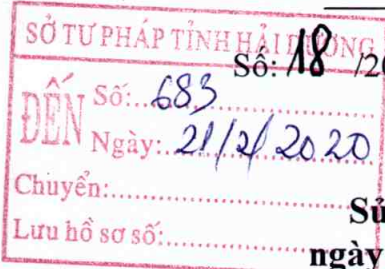 SỞ TƯ PHÁP TỈNH HẢI DƯƠNG
Số: 18 /20
ĐẾN Số: 683
Ngày: 21/2/2020
Chuyển:
Lưu hồ sơ số:
Sử
ngày